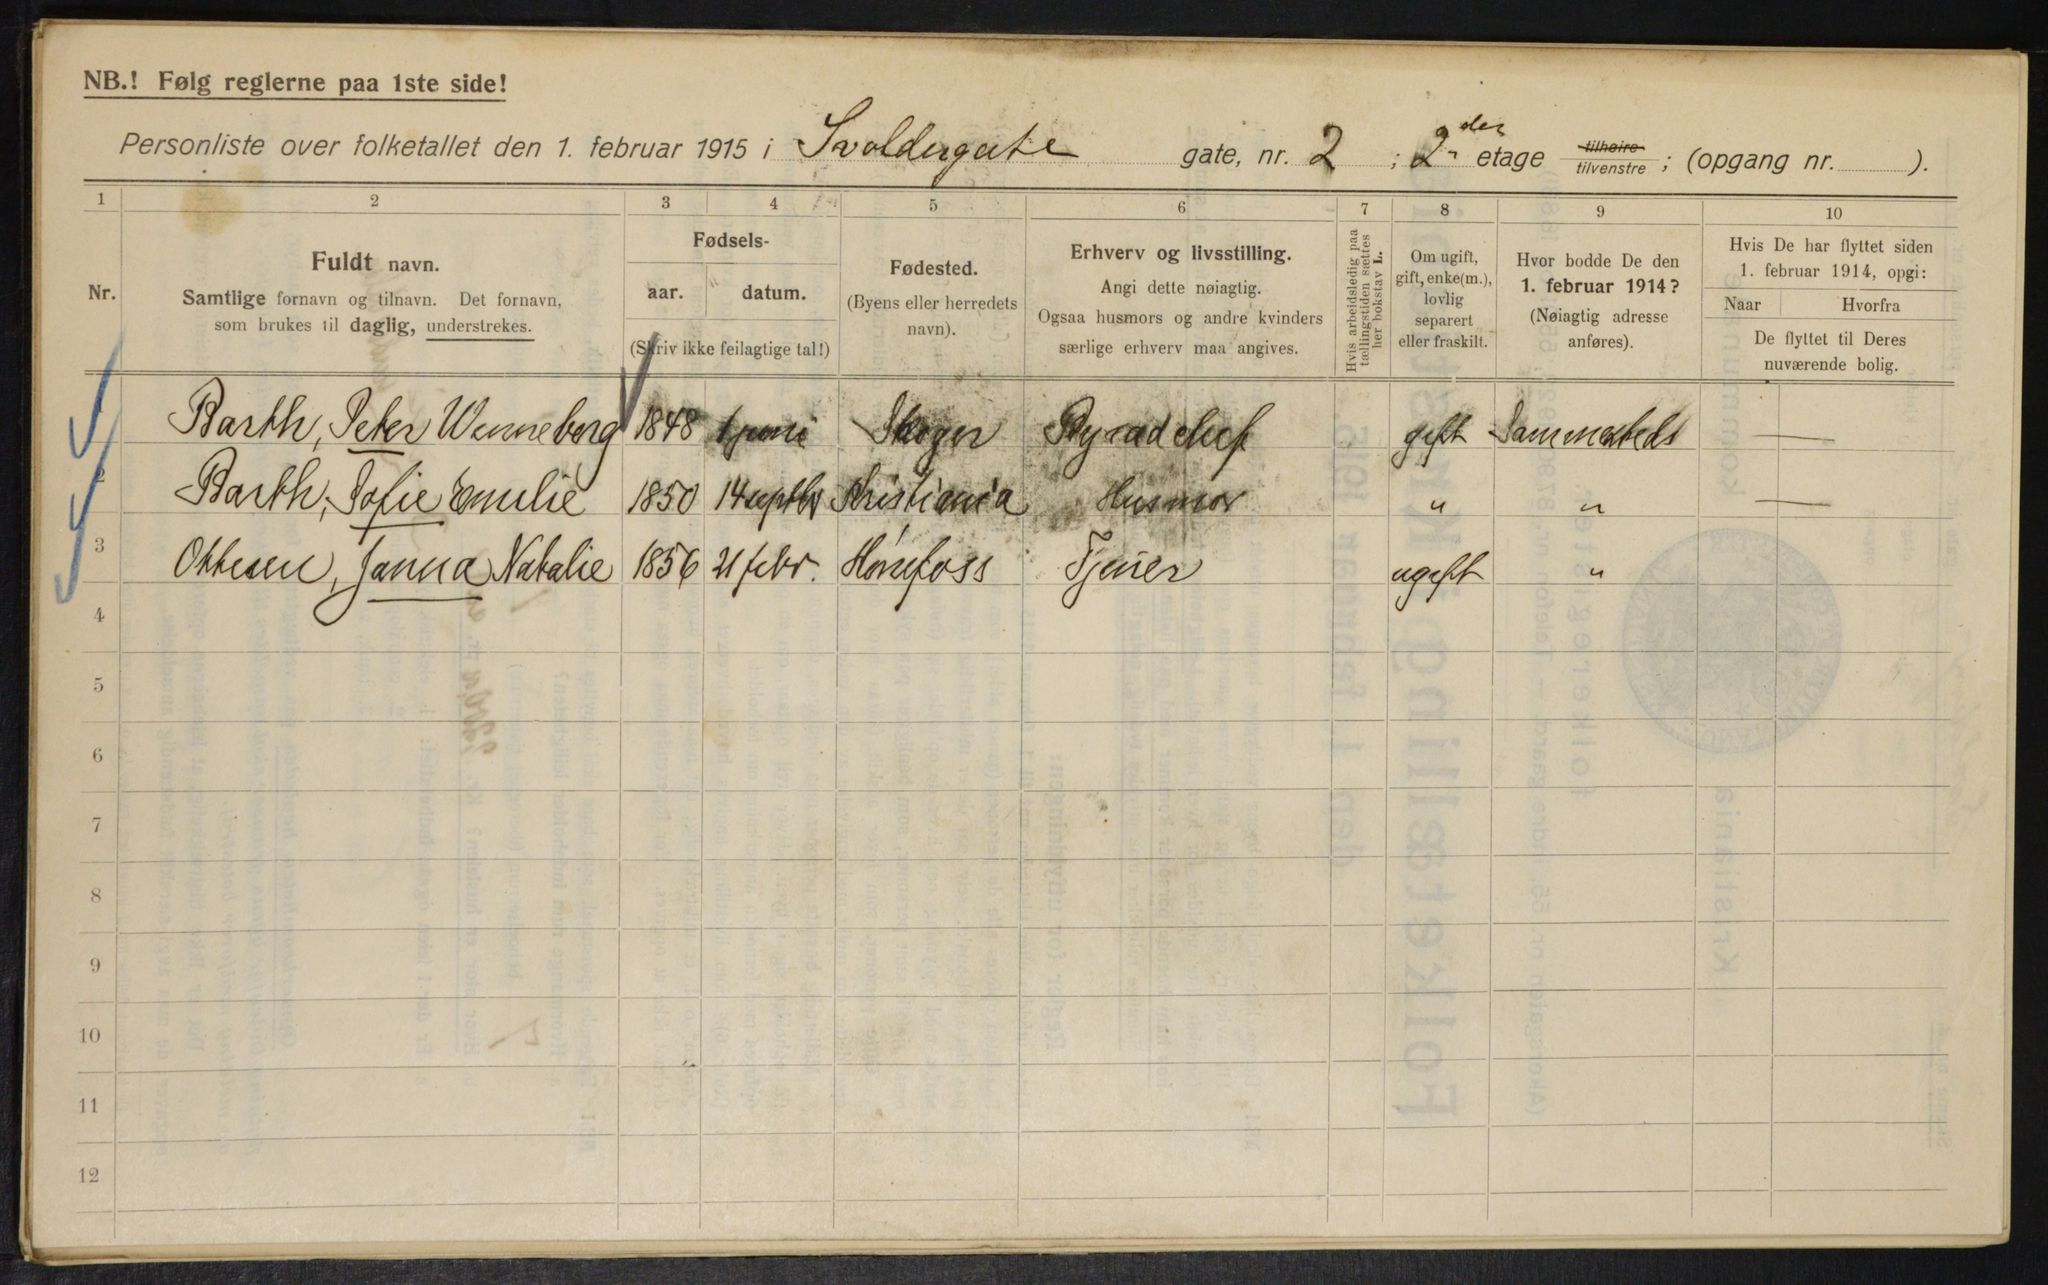 NB.! Følg reglerne paa 1ste side!
Personliste over folketallet den 1. februar 1915 i Svoldergate gate, nr. 2 ; 2den etage tilhøire tilvenstre ; (opgang nr. ).
1 2 3 4 5 6 7 8 9 10
Nr.
Fuldt navn.
Samtlige fornavn og tilnavn. Det fornavn,
som brukes til daglig, understrekes.
Fødsels-
aar. datum.
(Skriv ikke feilagtige tal!)
Fødested.
(Byens eller herredets
navn).
Erhverv og livsstilling.
Angi dette nøiagtig.
Ogsaa husmors og andre kvinders
særlige erhverv maa angives.
Hvis arbeidsledig paa
tællingstiden sættes
her bokstav L.
Om ugift,
gift, enke(m.),
lovlig
separert
eller fraskilt.
Hvor bodde De den
1. februar 1914?
(Nøiagtig adresse
anføres).
Hvis De har flyttet siden
1. februar 1914, opgi:
Naar Hvorfra
De flyttet til Deres
nuværende bolig.
1 Barth, Peter Wenneberg 1848 1 juni Skoger Byraachef gift Sammesteds —
2 Barth, Sofie Emilie 1850 14 septbr Kristiania Husmor " " —
3 Ottesen, Janna Natalie 1856 21 febr. Hønefoss Tjener ugift "
4
5
6
7
8
9
10
11
12